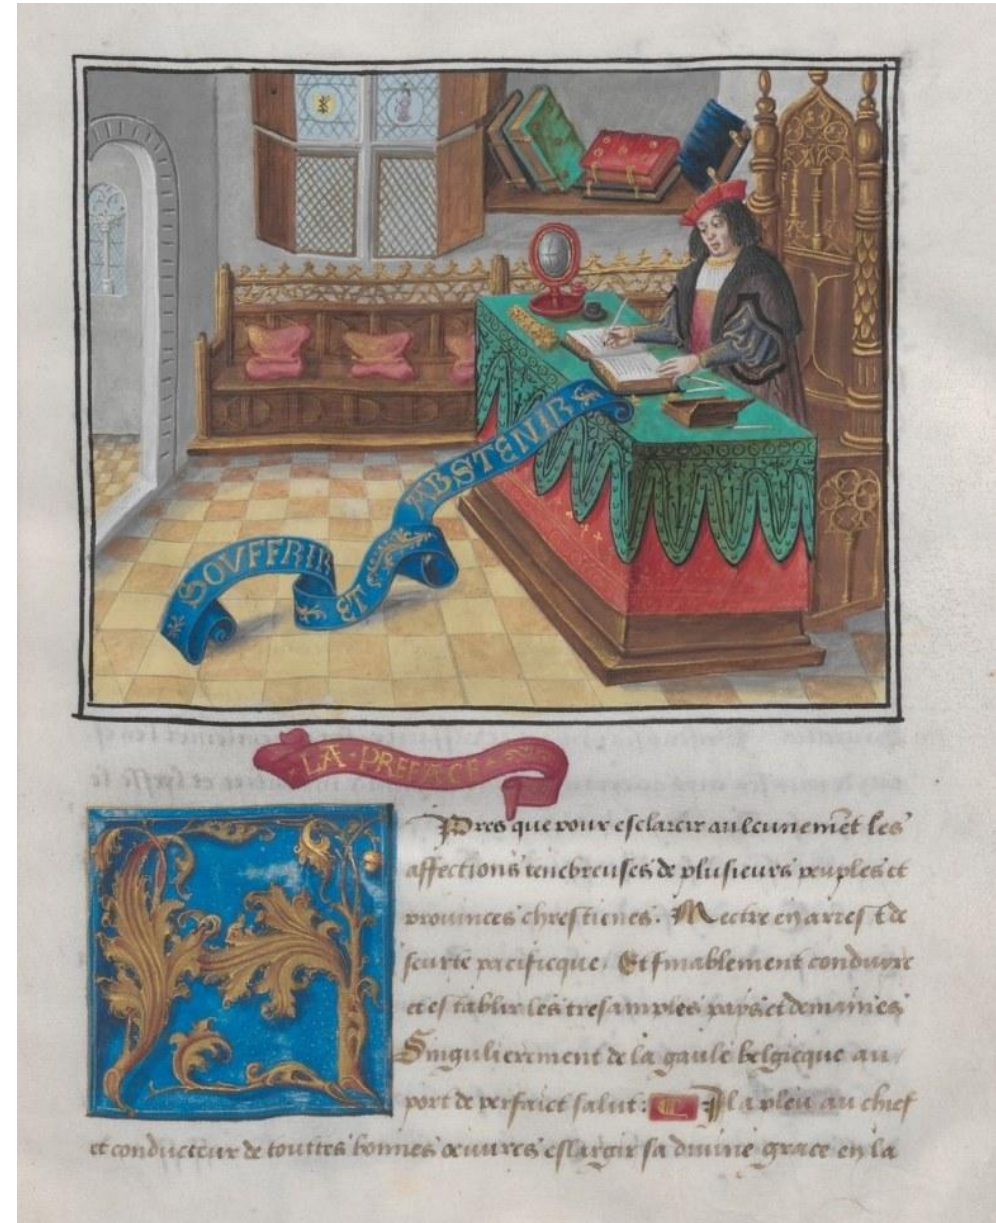 SOVFFRIR
ET
ABSTENIR
LA · PREFACE ·
Apres que pour esclarcir aulcunemēt les
affections tenebreuses de plusieurs peuples et
prouinces chrestiēnes. Mectre en arrest de
seurte pacificque. Et finablement conduyre
et establir les tresamples pays et demaines
Singulierement de la gaule belgicque au
port de perfaict salut: Il a pleu au chief
et conducteur de touttes bonnes œuures eslargir sa diuine grace en la